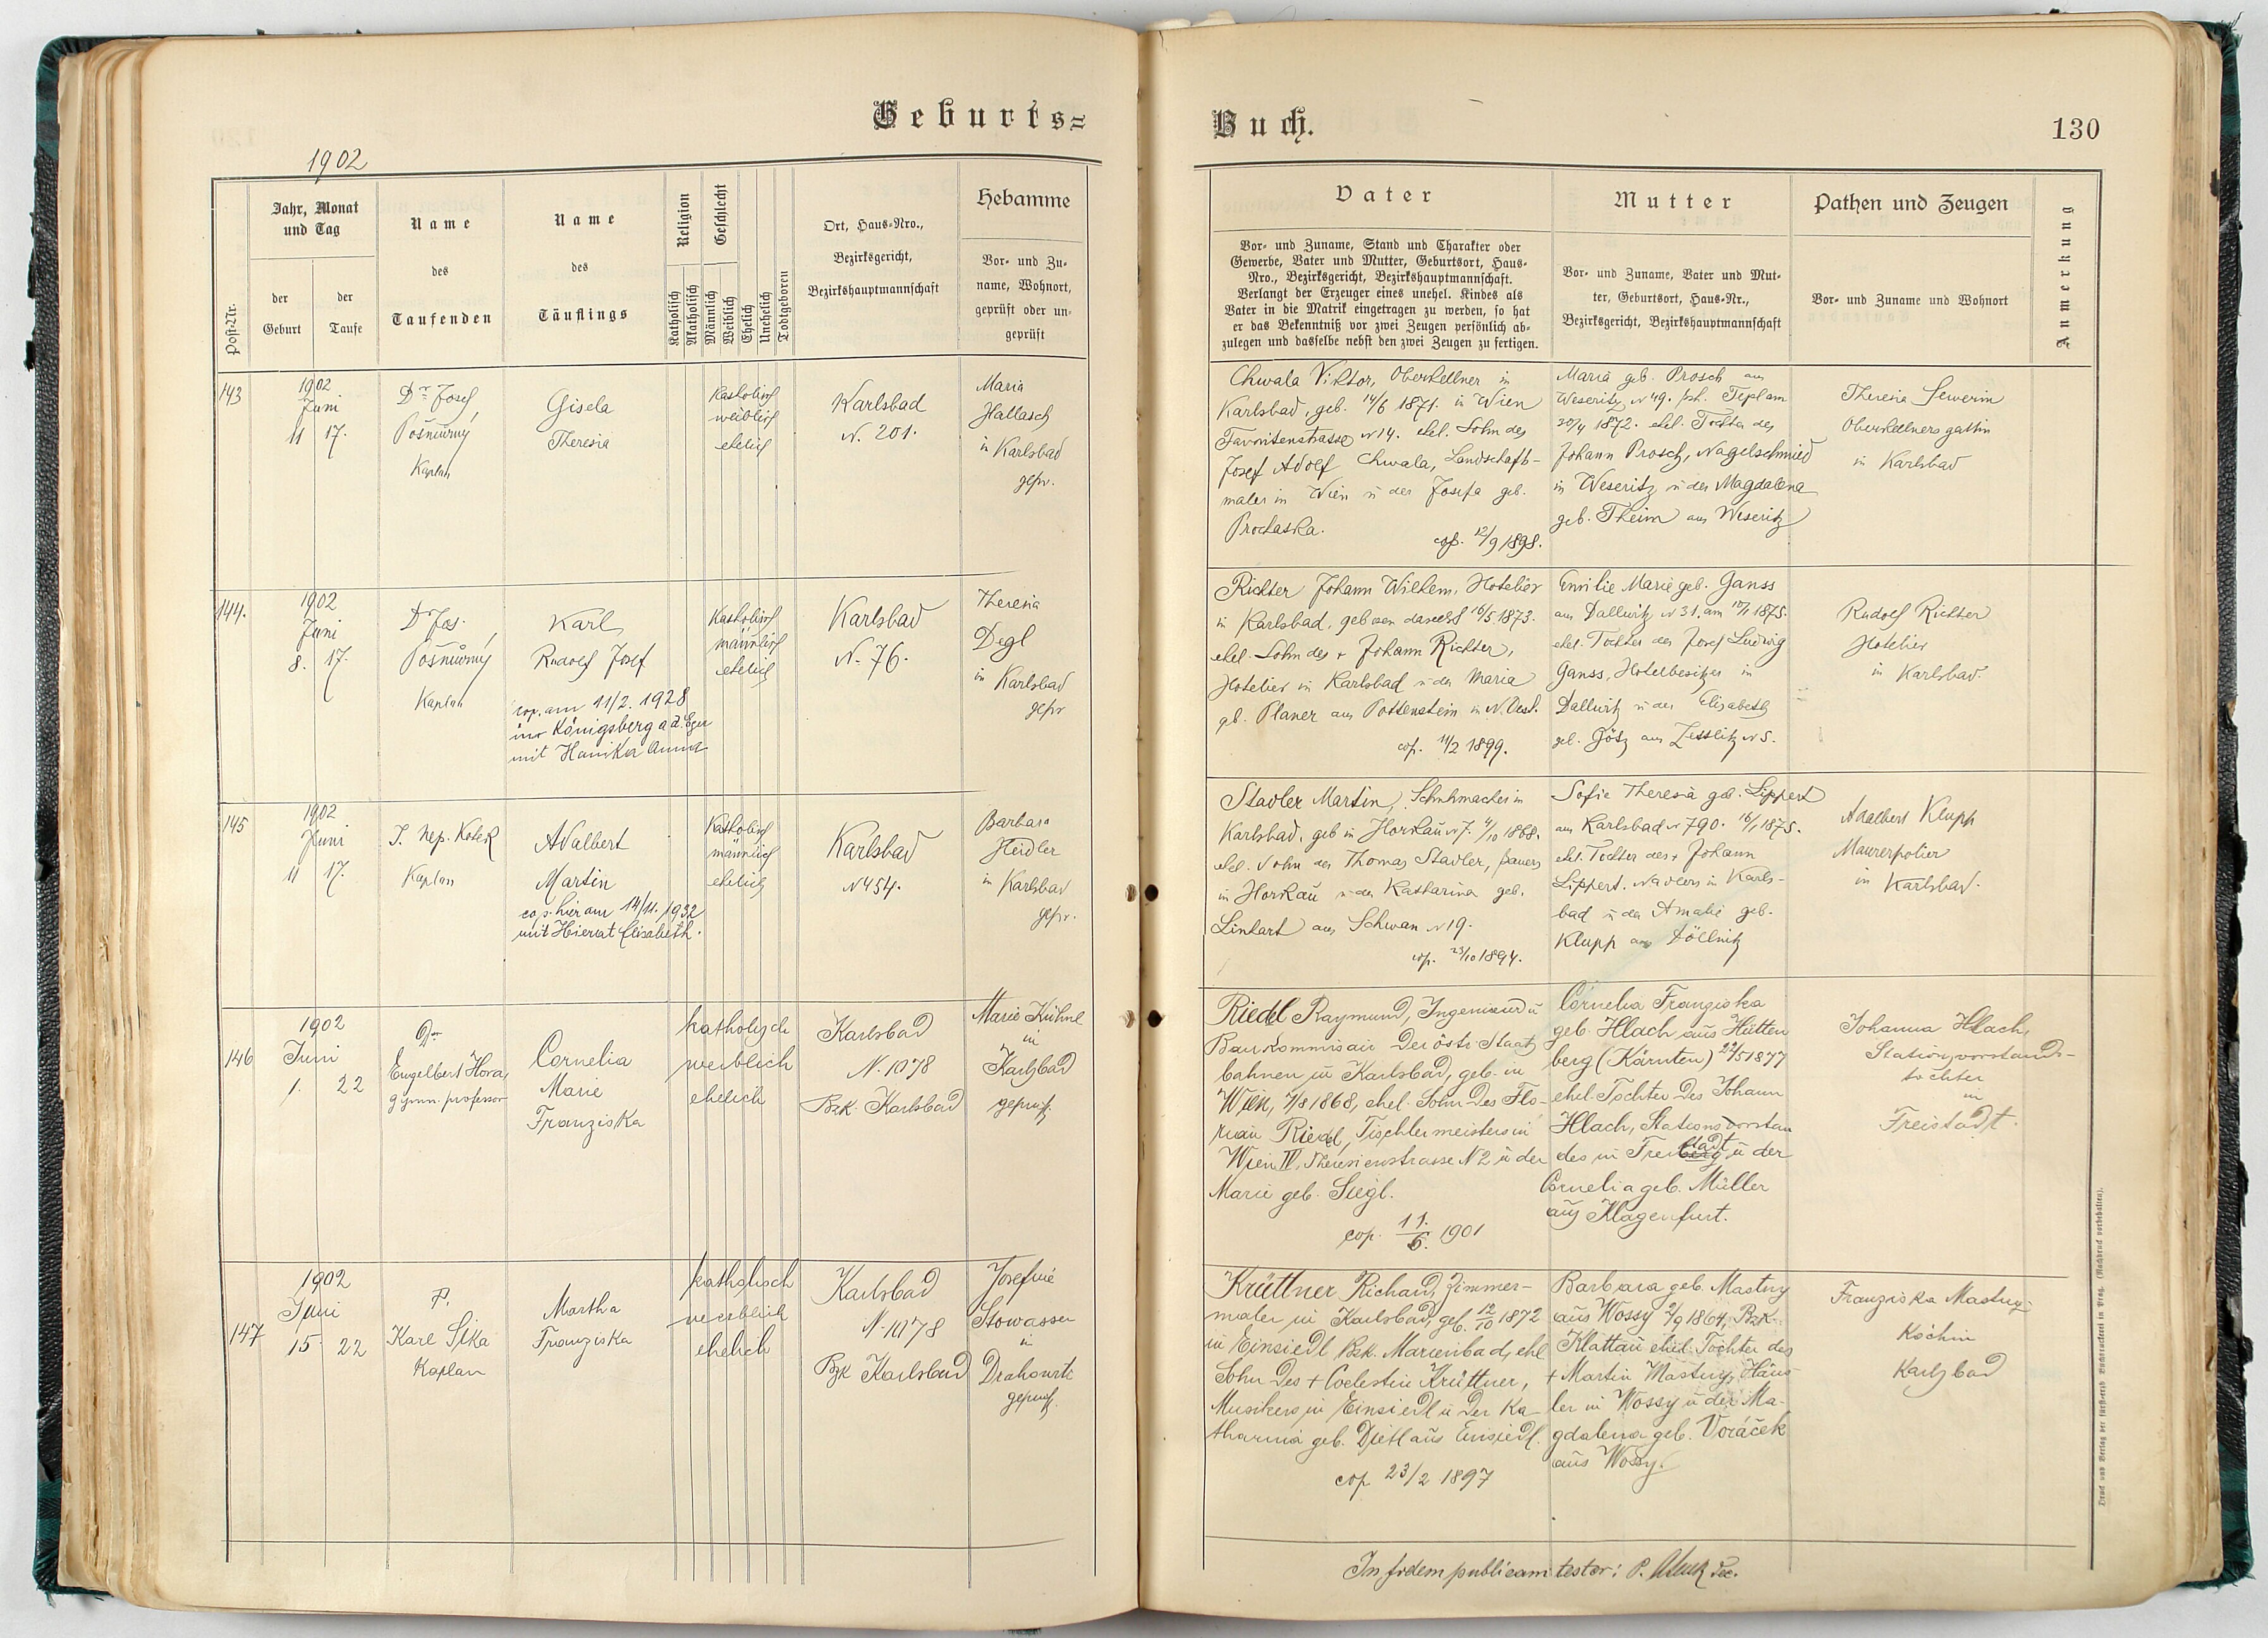 Geburts=
1902
Post-Nr.
Jahr, Monat
und Tag
der
Geburt
der
Taufe
Name
des
Taufenden
Name
des
Täuflings
Religion
Katholisch
Akatholisch
Geschlecht
Männlich
Weiblich
Ehelich
Unehelich
Todtgeboren
Ort, Haus-Nro.,
Bezirksgericht,
Bezirkshauptmannschaft
Hebamme
Vor- und Zu-
name, Wohnort,
geprüft oder un-
geprüft
143
1902
Juni
11 17.
Dr. Josef
Pošmůrný
Kaplan
Gisela
Theresia
Katholisch
weiblich
ehelich
Karlsbad
N. 201.
Maria
Hallasch
in Karlsbad
gepr.
144.
1902
Juni
8. 17.
Dr Jos.
Pošmůrný
Kaplan
Karl
Rudolf Josef
cop. am 11/2. 1928
in Königsberg a.d. Eger
mit Hanika Anna
Katholisch
männlich
ehelich
Karlsbad
N. 76.
Theresia
Degl
in Karlsbad
gepr
145
1902
Juni
11 17.
J. Nep. Kotek
Kaplan
Adalbert
Martin
cop. hier am 14/11. 1932
mit Hierat Elisabeth.
Katholisch
männlich
ehelich
Karlsbad
N 454.
Barbara
Heidler
in Karlsbad
gepr.
146
1902
Juni
1. 22
Dr
Engelbert Hora,
gymn. professor
Cornelia
Marie
Franziska
katholisch
weiblich
ehelich
Karlsbad
N. 1078
Bzk. Karlsbad
Marie Kühnl
in
Karlsbad
geprüft.
147
1902
Juni
15 22
P.
Karl Sika
Kaplan
Martha
Franziska
katholisch
weiblich
ehelich
Karlsbad
N. 1078
Bzk Karlsbad
Josefine
Stowasser
in
Drahowitz
geprüft.
Buch.
130
Vater
Vor- und Zuname, Stand und Charakter oder
Gewerbe, Vater und Mutter, Geburtsort, Haus-
Nro., Bezirksgericht, Bezirkshauptmannschaft.
Verlangt der Erzeuger eines unehel. Kindes als
Vater in die Matrik eingetragen zu werden, so hat
er das Bekenntniß vor zwei Zeugen persönlich ab-
zulegen und dasselbe nebst den zwei Zeugen zu fertigen.
Mutter
Vor- und Zuname, Vater und Mut-
ter, Geburtsort, Haus-Nr.,
Bezirksgericht, Bezirkshauptmannschaft
Pathen und Zeugen
Vor- und Zuname und Wohnort
Anmerkung
Chwala Viktor, Oberkellner in
Karlsbad, geb. 14/6 1871. in Wien
Favoritenstrasse N 14. ehel. Sohn des
Josef Adolf Chwala, Landschaft-
maler in Wien u der Josefa geb.
Prochaska.
cop. 12/9 1898.
Maria geb. Prosch aus
Weseritz N 49. bh. Tepl am
20/4 1872. ehel. Tochter des
Johann Prosch, Nagelschmied
in Weseritz u der Magdalena
geb. Theim aus Weseritz
Theresia Sewerin
Oberkellnersgattin
in Karlsbad
Richter Johann Wilhelm, Hotelier
in Karlsbad, geboren daselbst 16/5 1873.
ehel. Sohn des + Johann Richter,
Hotelier in Karlsbad u der Maria
geb. Planer aus Pottenstein in N. Oest.
cop. 11/2 1899.
Emilie Marie geb. Ganss
aus Dallwitz N 31. am 12/1 1875.
ehel. Tochter des Josef Ludwig
Ganss, Hotelbesitzer in
Dallwitz u der Elisabeth
geb. Götz aus Zettlitz N 5.
Rudolf Richter
Hotelier
in Karlsbad.
Stadler Martin, Schuhmacher in
Karlsbad, geb in Horkau N 7. 4/10 1868.
ehel. Sohn des Thomas Stadler, Bauers
in Horkau u der Katharina geb.
Linhart aus Schwan N 19.
cop. 23/10 1894.
Sofie Theresia geb. Lippert
aus Karlsbad N 790. 16/1 1875.
ehel. Tochter des + Johann
Lippert, Nadlers in Karls-
bad u der Amalie geb.
Klupp aus Döllnitz
Adalbert Klupp
Maurerpolier
in Karlsbad.
Riedl Raymund, Ingenieur u
Baukommissair der östr. Staats
bahnen in Karlsbad, geb. in
Wien, 7/8 1868, ehel. Sohn des Flo-
rian Riedl, Tischlermeisters in
Wien IV. Theresienstrasse N 2 u der
Marie geb. Siegl.
cop. 11./6. 1901
Cornelia Franziska
geb. Hlach aus Hütten
berg (Kärnten) 22/5 1877
ehel. Tochter des Johann
Hlach, Stationsvorstan
des in Freistadt u der
Cornelia geb. Müller
aus Klagenfurt.
Johanna Hlach,
Stationsvorstands-
tochter
in
Freistadt.
Krüttner Richard, Zimmer-
maler in Karlsbad, geb. 12/10 1872
in Einsiedl Bzk. Marienbad, ehel
Sohn des + Coelestin Krüttner,
Musikers in Einsiedl u der Ka-
tharina geb. Dietl aus Einsiedl.
cop. 23/2 1897
Barbara geb. Mastny
aus Wossy 2/9 1864, Bzk.
Klattau ehel. Tochter des
+ Martin Mastny, Häus
ler in Wossy u der Ma-
gdalena geb. Voráček
aus Wossy.
Franziska Mastny
Köchin
Karlsbad
In fidem publicam testor: P. Dec.
Druck und Verlag der fürsterzb. Buchdruckerei in Prag. (Nachdruck vorbehalten).